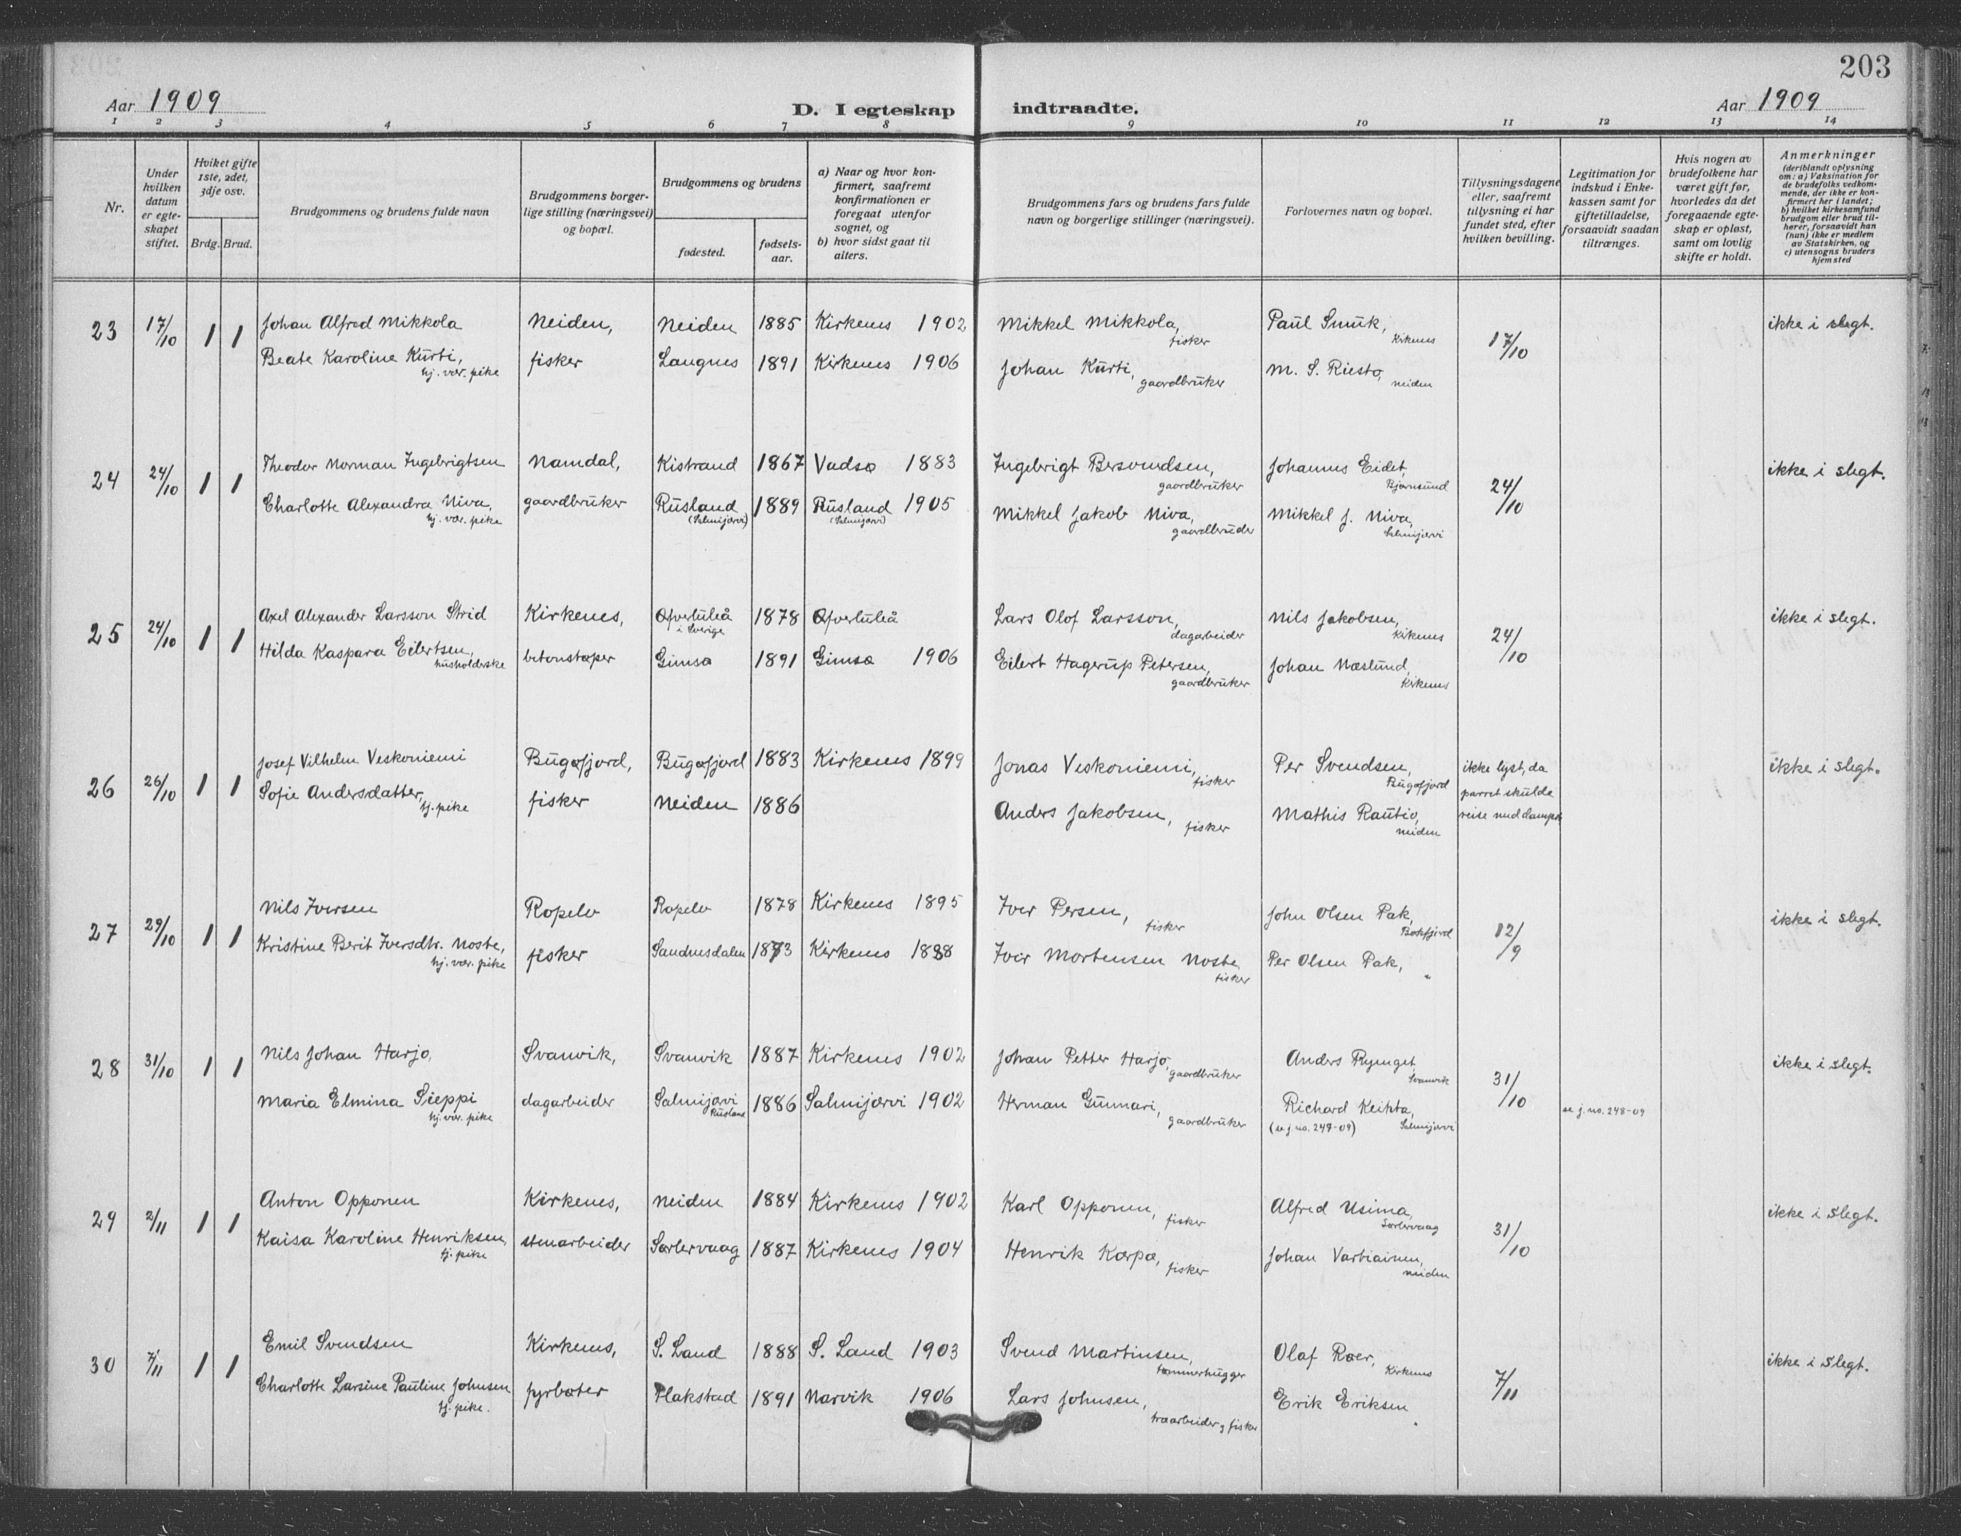 203
Aar 1909
D. I egteskap indtraadte.
Aar 1909
1 2 3 4 5 6 7 8 9 10 11 12 13 14
Nr.
Under hvilken datum er egteskapet stiftet.
Hviket gifte 1ste, 2det, 3dje osv.
Brdg. Brud.
Brudgommens og brudens fulde navn
Brudgommens borgerlige stilling (næringsvei) og bopæl.
Brudgommens og brudens
fødested.
fødselsaar.
a) Naar og hvor konfirmert, saafremt konfirmationen er foregaat utenfor sognet, og
b) hvor sidst gaat til alters.
Brudgommens fars og brudens fars fulde navn og borgerlige stillinger (næringsvei).
Forlovernes navn og bopæl.
Tillysningsdagene eller, saafremt tillysning ei har fundet sted, efter hvilken bevilling.
Legitimation for indskud i Enkekassen samt for giftetilladelse, forsaavidt saadan tiltrænges.
Hvis nogen av brudefolkene har været gift før, hvorledes da det foregaaende egteskap er opløst, samt om lovlig skifte er holdt.
Anmerkninger (deriblandt oplysning om: a) Vaksination for de brudefolks vedkommende, der ikke er konfirmert her i landet; b) hvilket kirkesamfund brudgom eller brud tilhører, forsaavidt han (hun) ikke er medlem av Statskirken, og c) utensogns bruders hjemsted
23 17/10 1 1 Johan Alfred Mikkola Neiden, Neiden 1885 Kirkenes 1902 Mikkel Mikkola, fisker Paul Smuk, Kirkenes 17/10 ikke i slegt.
Beate Karoline Kurti, hj. vær. pike fisker Langnes 1891 Kirkenes 1906 Johan Kurti, gaardbruker M. S. Riesto, Neiden
24 24/10 1 1 Theodor Norman Ingebrigtsen Namdal, Kistrand 1867 Vadsø 1883 Ingebrigt Bersvendsen, gaardbruker Johannes Eidet, Bjørnsund 24/10 ikke i slegt.
Charlotte Alexandra Niva, hj. vær. pike gaardbruker Rusland (Salmijærvi) 1889 Rusland (Salmijærvi) 1905 Mikkel Jakob Niva, gaardbruder Mikkel J. Niva, Salmijærvi
25 24/10 1 1 Axel Alexander Larsson Strid Kirkenes, Øfvertuleå i Sverige 1878 Øfvertuleå Lars Olof Larsson, dagarbeider Nils Jakobsen, Kirkenes 24/10 ikke i slegt.
Hilda Kaspara Eilertsen, husholderske betonstøper Gimsø 1891 Gimsø 1906 Eilert Hagerup Petersen, gaardbruker Johan Næslund, Kirkenes
26 26/10 1 1 Josef Vilhelm Veskoniemi Bugøfjord, Bugøfjord 1883 Kirkenes 1899 Jonas Veskoniemi, fisker Per Svendsen, Bugøfjord ikke lyst, da parret skulde reise med dampsk ikke i slegt.
Sofie Andersdatter, tj. pike fisker Neiden 1886 Anders Jakobsen, fisker Mathis Rautio, Neiden
27 29/10 1 1 Nils Iversen Ropelv Ropelv 1878 Kirkenes 1895 Iver Persen, fisker John Olsen Pak, Bøkfjord 12/9 ikke i slegt.
Kristine Berit Iversdtr. Noste, hj. vær. pike fisker Sandnesdalen 1873 Kirkenes 1888 Iver Mortensen Noste, fisker Per Olsen Pak, "
28 31/10 1 1 Nils Johan Harjo, Svanvik, Svanvik 1887 Kirkenes 1902 Johan Petter Harjo, gaardbruker Anders Rynget Svanvik 31/10 ikke i slegt.
Maria Elmina Sieppi hj. vær. pike dagarbeider Salmijærvi Rusland 1886 Salmijærvi 1902 Herman Gunnari, gaardbruker Richard Keihta, Salmijærvi (se j. no. 249-09) se j. no. 248-09
29 2/11 1 1 Anton Opponen Kirkenes, Neiden 1884 Kirkenes 1902 Karl Opponen, fisker Alfred Usima, Sørlervaag 31/10 ikke i slegt.
Kaisa Karoline Henriksen, tj. pike stenarbeider Sørlervaag 1887 Kirkenes 1904 Henrik Karpa, fisker Johan Varbiainen, Neiden
30 7/11 1 1 Emil Svendsen Kirkenes, S. Land 1888 S. Land 1903 Svend Martinsen, tømmerhugger Olaf Roer, Kirkenes 7/11 ikke i slegt.
Charlotte Larsine Pauline Johnsen tj. pike. fyrbøter Flakstad 1891 Narvik 1906 Lars Johnsen, træarbeider, fisker Erik Eriksen "